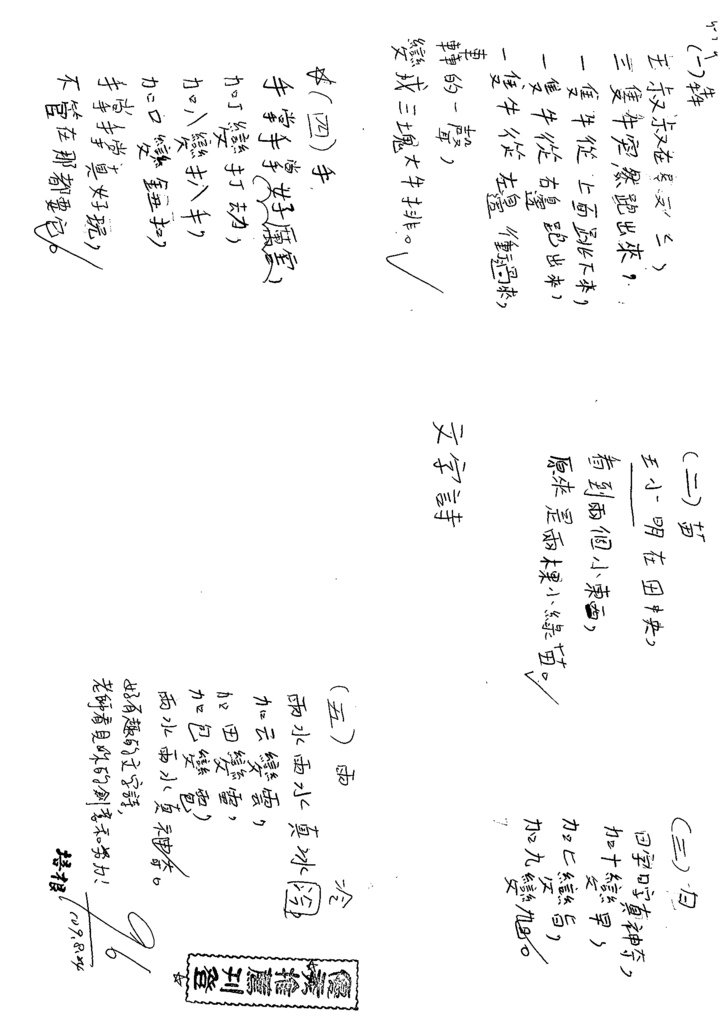 文字詩
(一)犇
王叔叔在
三隻牛突然跑出來,
一隻牛從上面跳下來,
一隻牛從右邊跑出來,
一隻牛從左邊衝過來,
轟的一聲,
變成三塊大牛排。
(二)苗
王小明在田中央,
看到兩個小東西,
原來是兩棵小綠苗。
(三)日
日字日字真神奇,
加十變早,
加匕變旨,
加九變旭。
☆(四)手
手掌手掌好厲害,
加丁變打
加八變扒手,
加口變扣,
手掌手掌真好玩,
不管在那都要它。
(五)雨
雨水雨水真冰冷
加云變雲,
加田變雷,
加包變雹,
雨水雨水真神奇。
好有趣的文字詩,
老師看見妳的創意和努力!
96
109.8.24
優美推薦
刊登